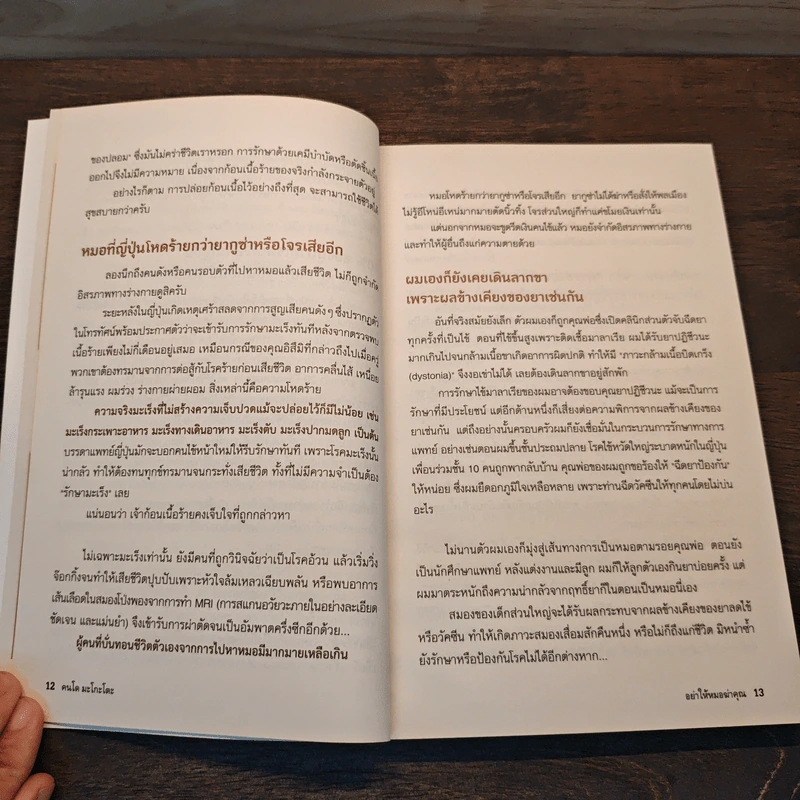 ของปลอม" ซึ่งมันไม่คร่าชีวิตเราหรอก การรักษาด้วยเคมีบำบัดหรือตัดชิ้นเนื้อ
ออกไปจึงไม่มีความหมาย เนื่องจากก้อนเนื้อร้ายของจริงกำลังกระจายตัวอยู่
อย่างไรก็ตาม การปล่อยก้อนเนื้อไว้อย่างถึงที่สุด จะสามารถใช้ชีวิตได้
สุขสบายกว่าครับ
หมอที่ญี่ปุ่นโหดร้ายกว่ายากูซ่าหรือโจรเสียอีก
ลองนึกถึงคนดังหรือคนรอบตัวที่ไปหาหมอแล้วเสียชีวิต ไม่ก็ถูกจำกัด
อิสรภาพทางร่างกายดูสิครับ
ระยะหลังในญี่ปุ่นเกิดเหตุเศร้าสลดจากการสูญเสียคนดังๆ ซึ่งปรากฏตัว
ในโทรทัศน์พร้อมประกาศตัวว่าจะเข้ารับการรักษามะเร็งทันทีหลังจากตรวจพบ
เนื้อร้ายเพียงไม่กี่เดือนอยู่เสมอ เหมือนกรณีของคุณอิสึมิที่กล่าวถึงไปเมื่อครู่
พวกเขาต้องทนทรมานจากการต่อสู้กับโรคร้ายก่อนเสียชีวิต อาการคลื่นไส้ เหนื่อย
ล้ารุนแรง ผมร่วง ร่างกายผ่ายผอม สิ่งเหล่านี้คือความโหดร้าย
ความจริงมะเร็งที่ไม่สร้างความเจ็บปวดแม้จะปล่อยไว้ก็มีไม่น้อย เช่น
มะเร็งกระเพาะอาหาร มะเร็งทางเดินอาหาร มะเร็งตับ มะเร็งปากมดลูก เป็นต้น
บรรดาแพทย์ญี่ปุ่นมักจะบอกคนไข้หน้าใหม่ให้รีบรักษาทันที เพราะโรคมะเร็งนั้น
น่ากลัว ทำให้ต้องทนทุกข์ทรมานจนกระทั่งเสียชีวิต ทั้งที่ไม่มีความจำเป็นต้อง
"รักษามะเร็ง" เลย
แน่นอนว่า เจ้าก้อนเนื้อร้ายคงเจ็บใจที่ถูกกล่าวหา
ไม่เฉพาะมะเร็งเท่านั้น ยังมีคนที่ถูกวินิจฉัยว่าเป็นโรคอ้วน แล้วเริ่มวิ่ง
จ๊อกกิ้งจนทำให้เสียชีวิตปุบปับเพราะหัวใจล้มเหลวเฉียบพลัน หรือพบอาการ
เส้นเลือดในสมองโป่งพองจากการทำ MRI (การสแกนอวัยวะภายในอย่างละเอียด
ชัดเจน และแม่นยำ) จึงเข้ารับการผ่าตัดจนเป็นอัมพาตครึ่งซีกอีกด้วย...
ผู้คนที่บั่นทอนชีวิตตัวเองจากการไปหาหมอมีมากมายเหลือเกิน
12 คนโด มะโกะโตะ
หมอโหดร้ายกว่ายากูซ่าหรือโจรเสียอีก ยากูซ่าไม่ได้ฆ่าหรือสั่งให้พลเมือง
ไม่รู้อีโหน่อีเหน่มากมายตัดนิ้วทิ้ง โจรส่วนใหญ่ก็ทำแค่ขโมยเงินเท่านั้น
แต่นอกจากหมอจะขูดรีดเงินคนไข้แล้ว หมอยังจำกัดอิสรภาพทางร่างกาย
และทำให้ผู้อื่นถึงแก่ความตายด้วย
ผมเองก็ยังเคยเดินลากขา
เพราะผลข้างเคียงของยาเช่นกัน
อันที่จริงสมัยยังเล็ก ตัวผมเองก็ถูกคุณพ่อซึ่งเปิดคลินิกส่วนตัวจับฉีดยา
ทุกครั้งที่เป็นไข้ ตอนที่ไข้ขึ้นสูงเพราะติดเชื้อมาลาเรีย ผมได้รับยาปฏิชีวนะ
มากเกินไปจนกล้ามเนื้อขาเกิดอาการผิดปกติ ทำให้มี "ภาวะกล้ามเนื้อบิดเกร็ง
(dystonia)" จึงงอเข่าไม่ได้ เลยต้องเดินลากขาอยู่สักพัก
การรักษาไข้มาลาเรียของผมอาจต้องขอบคุณยาปฏิชีวนะ แม้จะเป็นการ
รักษาที่มีประโยชน์ แต่อีกด้านหนึ่งก็เสี่ยงต่อความพิการจากผลข้างเคียงของ
ยาเช่นกัน แต่ถึงอย่างนั้นครอบครัวผมก็ยังเชื่อมั่นในกระบวนการรักษาทางการ
แพทย์ อย่างเช่นตอนผมขึ้นชั้นประถมปลาย โรคไข้หวัดใหญ่ระบาดหนักในญี่ปุ่น
เพื่อนร่วมชั้น 10 คนถูกพากลับบ้าน คุณพ่อของผมถูกขอร้องให้ "ฉีดยาป้องกัน"
ให้หน่อย ซึ่งผมยืดอกภูมิใจเหลือหลาย เพราะท่านฉีดวัคซีนให้ทุกคนโดยไม่บ่น
อะไร
ไม่นานตัวผมเองก็มุ่งสู่เส้นทางการเป็นหมอตามรอยคุณพ่อ ตอนยัง
เป็นนักศึกษาแพทย์ หลังแต่งงานและมีลูก ผมก็ให้ลูกตัวเองกินยาบ่อยครั้ง แต่
ผมมาตระหนักถึงความน่ากลัวจากฤทธิ์ยาก็ในตอนเป็นหมอนี่เอง
สมองของเด็กส่วนใหญ่จะได้รับผลกระทบจากผลข้างเคียงของยาลดไข้
หรือวัคซีน ทำให้เกิดภาวะสมองเสื่อมสักคืนหนึ่ง หรือไม่ก็ถึงแก่ชีวิต มิหนำซ้ำ
ยังรักษาหรือป้องกันโรคไม่ได้อีกต่างหาก...
อย่าให้หมอฆ่าคุณ 13